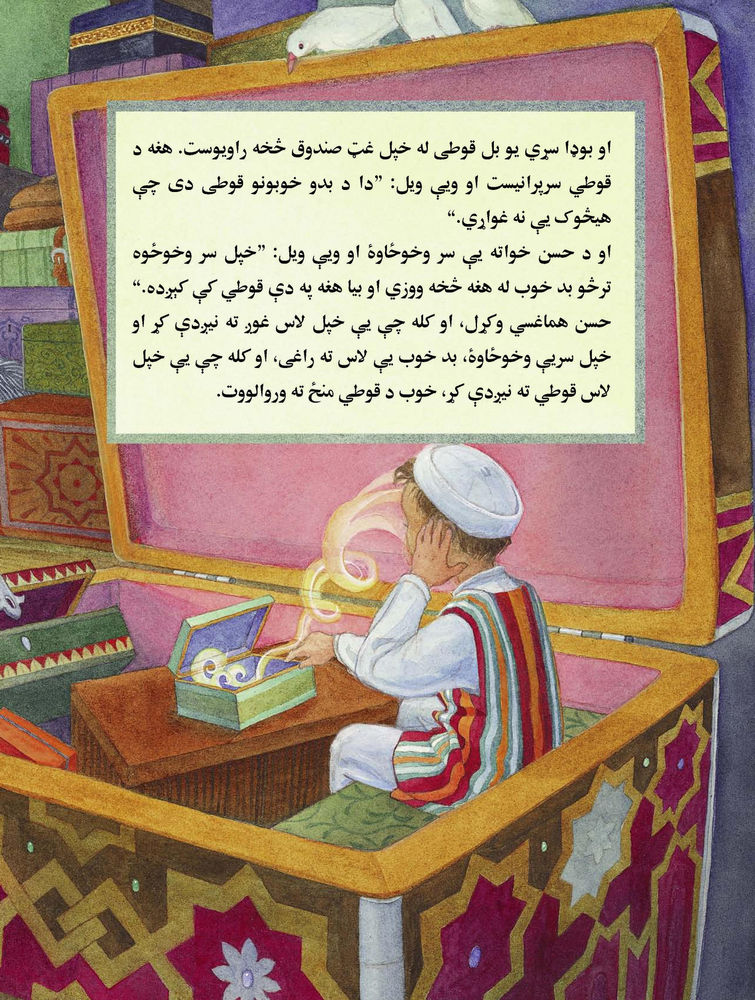 او بوډا سړي يو بل قوطی له خپل غټ صندوق څخه راويوست. هغه د
قوطي سرپرانيست او ويې ويل: ”دا د بدو خوبونو قوطی دی چې
هيڅوک يې نه غواړي.“
او د حسن خواته يې سر وخوځاوهٔ او ويې ويل: ”خپل سر وخوځوه
ترڅو بد خوب له هغه څخه ووزي او بيا هغه په دې قوطي کې کېږده.“
حسن هماغسي وکړل، او کله چې يې خپل لاس غوږ ته نيږدې کړ او
خپل سريې وخوځاوهٔ، بد خوب يې لاس ته راغی، او کله چې يې خپل
لاس قوطي ته نيږدې کړ، خوب د قوطي منځ ته وروالووت.